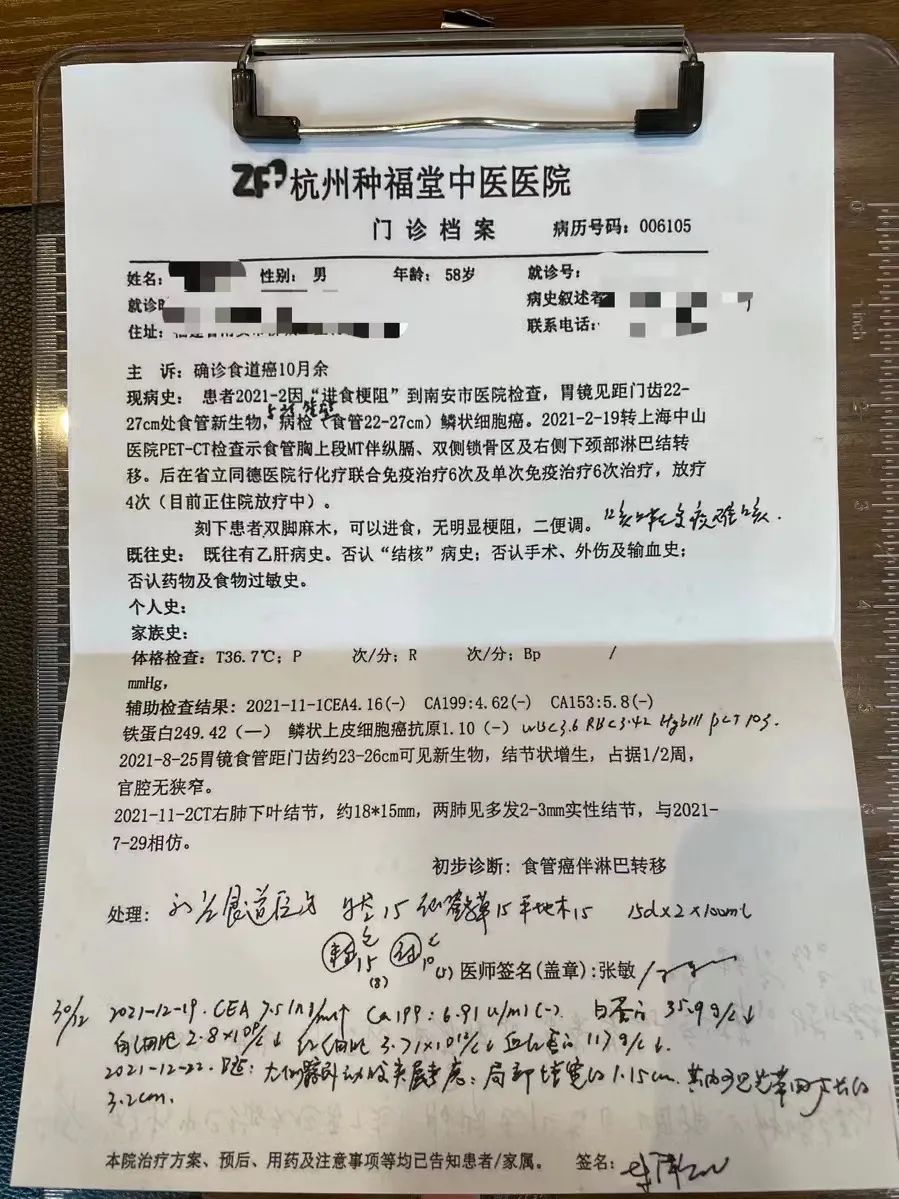 ZF 杭州种福堂中医医院
门诊档案 病历号码：006105
姓名： 性别： 男 年龄： 58岁 就诊号：
就诊时 病史叙述者
住址： 联系电话：
主 诉： 确诊食道癌10月余
现病史： 患者2021-2因“进食梗阻”到南安市医院检查，胃镜见距门齿22-
27cm处食管新生物，病检（食管22-27cm）鳞状细胞癌。2021-2-19转上海中山
医院PET-CT检查示食管胸上段MT伴纵膈、双侧锁骨区及右侧下颈部淋巴结转
移。后在省立同德医院行化疗联合免疫治疗6次及单次免疫治疗6次治疗，放疗
4次（目前正住院放疗中）。
刻下患者双脚麻木，可以进食，无明显梗阻，二便调。
既往史： 既往有乙肝病史。否认“结核”病史；否认手术、外伤及输血史；
否认药物及食物过敏史。
个人史：
家族史：
体格检查：T36.7℃；P 次/分；R 次/分；Bp /
mmHg，
辅助检查结果：2021-11-1CEA4.16(-) CA199:4.62(-) CA153:5.8(-)
铁蛋白249.42（—） 鳞状上皮细胞癌抗原1.10（-）WBC3.6 RBC3.42 Hgb111 PLT103.
2021-8-25胃镜食管距门齿约23-26cm可见新生物，结节状增生，占据1/2周，
官腔无狭窄。
2021-11-2CT右肺下叶结节，约18*15mm，两肺见多发2-3mm实性结节，与2021-
7-29相仿。
初步诊断：食管癌伴淋巴转移
处理： 15 仙鹤草15 平地木15 15d×2×100ml
15 10
医师签名(盖章)：张敏
30/12 2021-12-19. CEA 7.51ng/ml↑ Ca199：6.91u/ml(-). 白蛋白 35.9g/L↓
白细胞 2.8×10⁹/L↓ 红细胞 3.71×10¹²/L↓ 血红蛋白 117g/L↓.
2021-12-22. 局部增宽约1.15cm.
3.2cm.
本院治疗方案、预后、用药及注意事项等均已告知患者/家属。 签名：